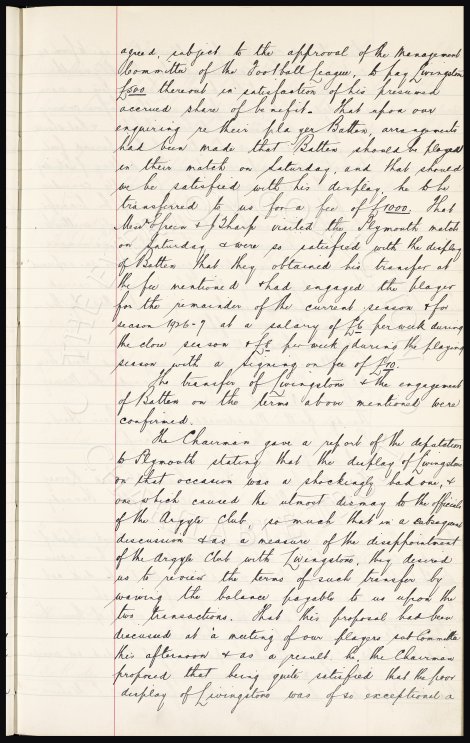 agreed, subject to the approval of the Management
Committee of the Football League, to pay Livingstone
£500 thereout in satisfaction of his presumed
accrued share of benefit. That upon our
enquiring re their player Batten, arrangements
had been made that Batten should be played
in their match on Saturday, and that should
we be satisfied with his display, he to be
transferred to us for a fee of £1000. That
Mess' Green & J Sharp visited the Plymouth match
on Saturday & were so satisfied with the display
of Batten that they obtained his transfer at
the fee mentioned & had engaged the player
for the remainder of the current season & for
season 1926-7 at a salary of £6 per week during
the close season & £8 per week during the playing
season with a signing on fee of £10.
The transfer of Livingstone & the engagement
of Batten on the terms above mentioned were
confirmed.
The Chairman gave a report of the deputation
to Plymouth stating that the display of Livingstone
on that occasion was a shockingly bad one, &
one which caused the utmost dismay to the officials
of the Argyle Club, so much that in a subsequent
discussion & as a measure of the disappointment
of the Argyle Club with Livingstone, they desired
us to review the terms of such transfer by
waiving the balance payable to us upon the
two transactions. That this proposal had been
discussed at a meeting of our players sub Committee
this afternoon & as a result he, the Chairman
proposed that being quite satisfied that the poor
display of Livingstone was of so exceptional a